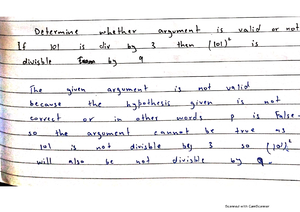 Determine whether argument is valid or not
If 101 is div by 3 then (101)² is
divisble by 9
The given argument is not valid
because the hypothesis given is not
correct or in other words p is False.
so the argument cannot be true as
101 is not divisble by 3 so (101)²
will also be not divisble by 9.
Scanned with CamScanner